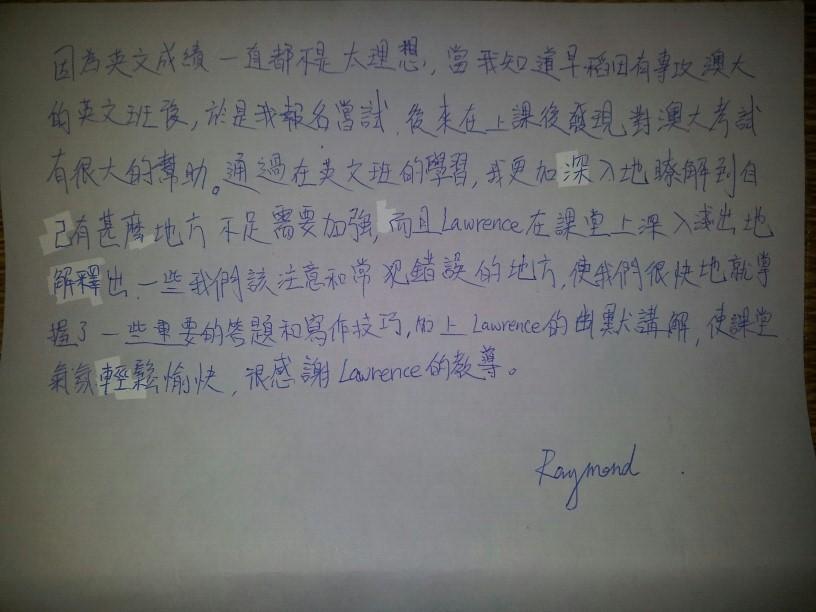 因為英文成績一直都不是太理想，當我知道早稻田有專攻澳大
的英文班後，於是我報名嘗試，後來在上課後發現，對澳大考試
有很大的幫助。通過在英文班的學習，我更加深入地瞭解到自
己有甚麼地方不足需要加強，而且Lawrence在課堂上深入淺出地
解釋出一些我們該注意和常犯錯誤的地方，使我們很快地就掌
握了一些重要的答題和寫作技巧，加上Lawrence的幽默講解，使課堂
氣氛輕鬆愉快，很感謝Lawrence的教導。
Raymond